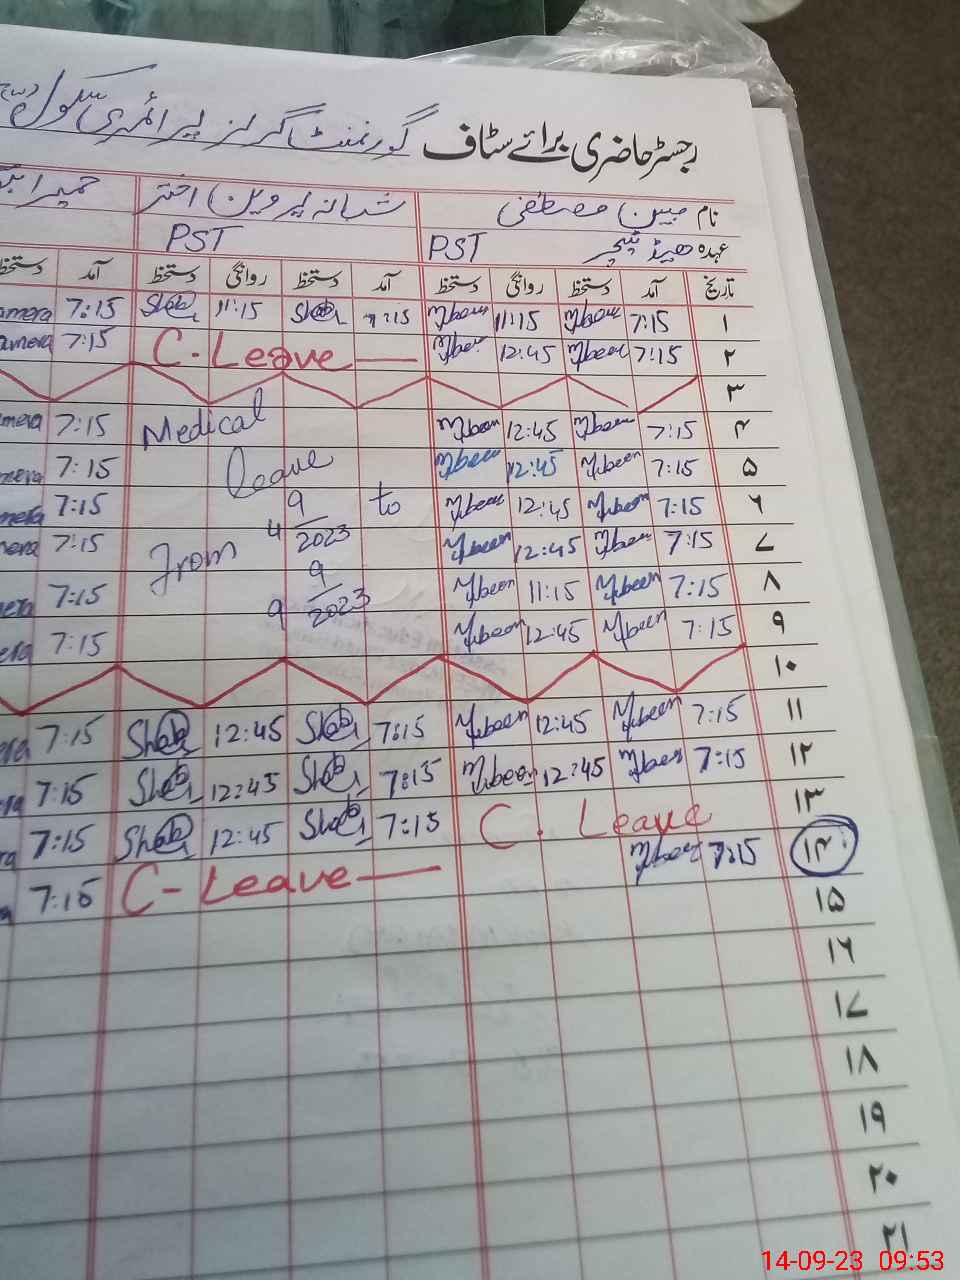 رجسٹر حاضری برائے سٹاف گورنمنٹ گرلز پرائمری سکول
نام مبین مصطفٰی شبانہ پروین اختر حمیرا
عہدہ ہیڈ ٹیچر PST PST
تاریخ آمد دستخط روانگی دستخط آمد دستخط روانگی دستخط آمد دستخط
۱ 7:15 Mbeen 11:15 Mbeen 7:15 Shab 11:15 Shab 7:15 amera
۲ 7:15 Mbeen 12:45 Mbeen C-Leave 7:15 amera
۳
۴ 7:15 Mbeen 12:45 Mbeen Medical 7:15 mera
۵ 7:15 Mbeen 12:45 Mbeen leave 7:15 mera
۶ 7:15 Mbeen 12:45 Mbeen 4 9/2023 to 7:15 mera
۷ 7:15 Mbeen 12:45 Mbeen From 7:15 mera
۸ 7:15 Mbeen 11:15 Mbeen 9 9/2023 7:15 mera
۹ 7:15 Mbeen 12:45 Mbeen 7:15 era
۱۰
۱۱ 7:15 Mbeen 12:45 Mbeen 7:15 Shab 12:45 Shab 7:15 era
۱۲ 7:15 Mbeen 12:45 Mbeen 7:15 Shab 12:45 Shab 7:15 era
۱۳ C. Leave 7:15 Shab 12:45 Shab 7:15 ra
۱۴ 7:15 Mbeen C-Leave 7:15 a
۱۵
۱۶
۱۷
۱۸
۱۹
۲۰
۲۱
14-09-23 09:53